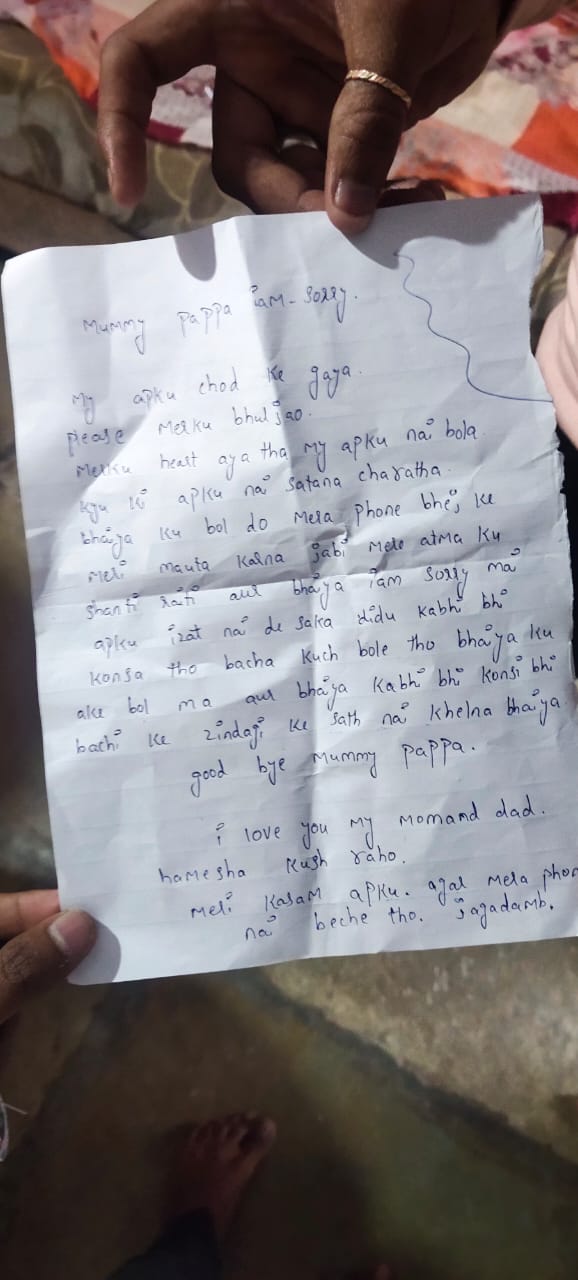 Mummy pappa iam-sorry.
My apku chod ke gaya.
please merku bhuljao.
Merku heart aya tha my apku nai bola
kyu ki apku nai satana charatha.
bhaiya ku bol do mera phone bhej ke
meri mauta karna jabi mere atma ku
shanti rati aur bhaiya iam sorry mai
apku izat nai de saka didu kabhi bhi
konsa tho bacha kuch bole tho bhaiya ku
ake bol ma aur bhaiya kabhi bhi konsi bhi
bachi ke zindagi ke sath nai khelna bhaiya
good bye Mummy pappa.
i love you my momand dad.
hamesha kush raho.
meri kasam apku. agar mera phon
nai beche tho. jagadamb.